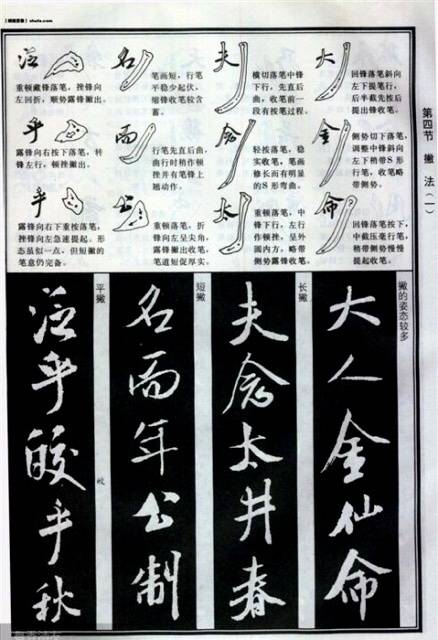 第四节 撇法(一)
大
回锋落笔斜向
左下提笔行,
后半截先按后
提出锋收笔。
金
侧势切下落笔,
调整中锋斜向
左下稍带 S 形
行笔,收笔略
带侧势。
命
回锋落笔按下,
中截压毫行笔,
稍带侧势慢慢
提起收笔。
夫
横切落笔中锋
下行,先直后
曲,收笔前一
段有按笔过程。
念
轻按落笔,稳
实收笔,笔画
修长而有明显
的 S 形弯曲。
太
重顿落笔,中
锋下行,左行
作顿挫,呈外
圆内方,略带
侧势露锋收笔。
名
笔画短,行笔
平稳少起伏,
缩锋收笔较含
蓄。
而
行笔先直后曲,
曲行时稍作顿
挫并有笔锋上
翘动作。
公
重顿落笔,折
锋向左呈尖角,
露锋撇出收笔,
笔道短促厚实。
泛
重顿藏锋落笔,挫锋向
左回折,顺势露锋撇出。
乎
露锋向右按下落笔,转
锋左行,顿挫撇出。
乎
露锋向右下重按落笔,
挫锋向左急速提起。形
态虽似一点,但短撇的
笔意仍完备。
撇的姿态较多
大人金仙命
长撇
夫念太井春
短撇
名而年公制
平撇
泛乎皎乎秋
皎